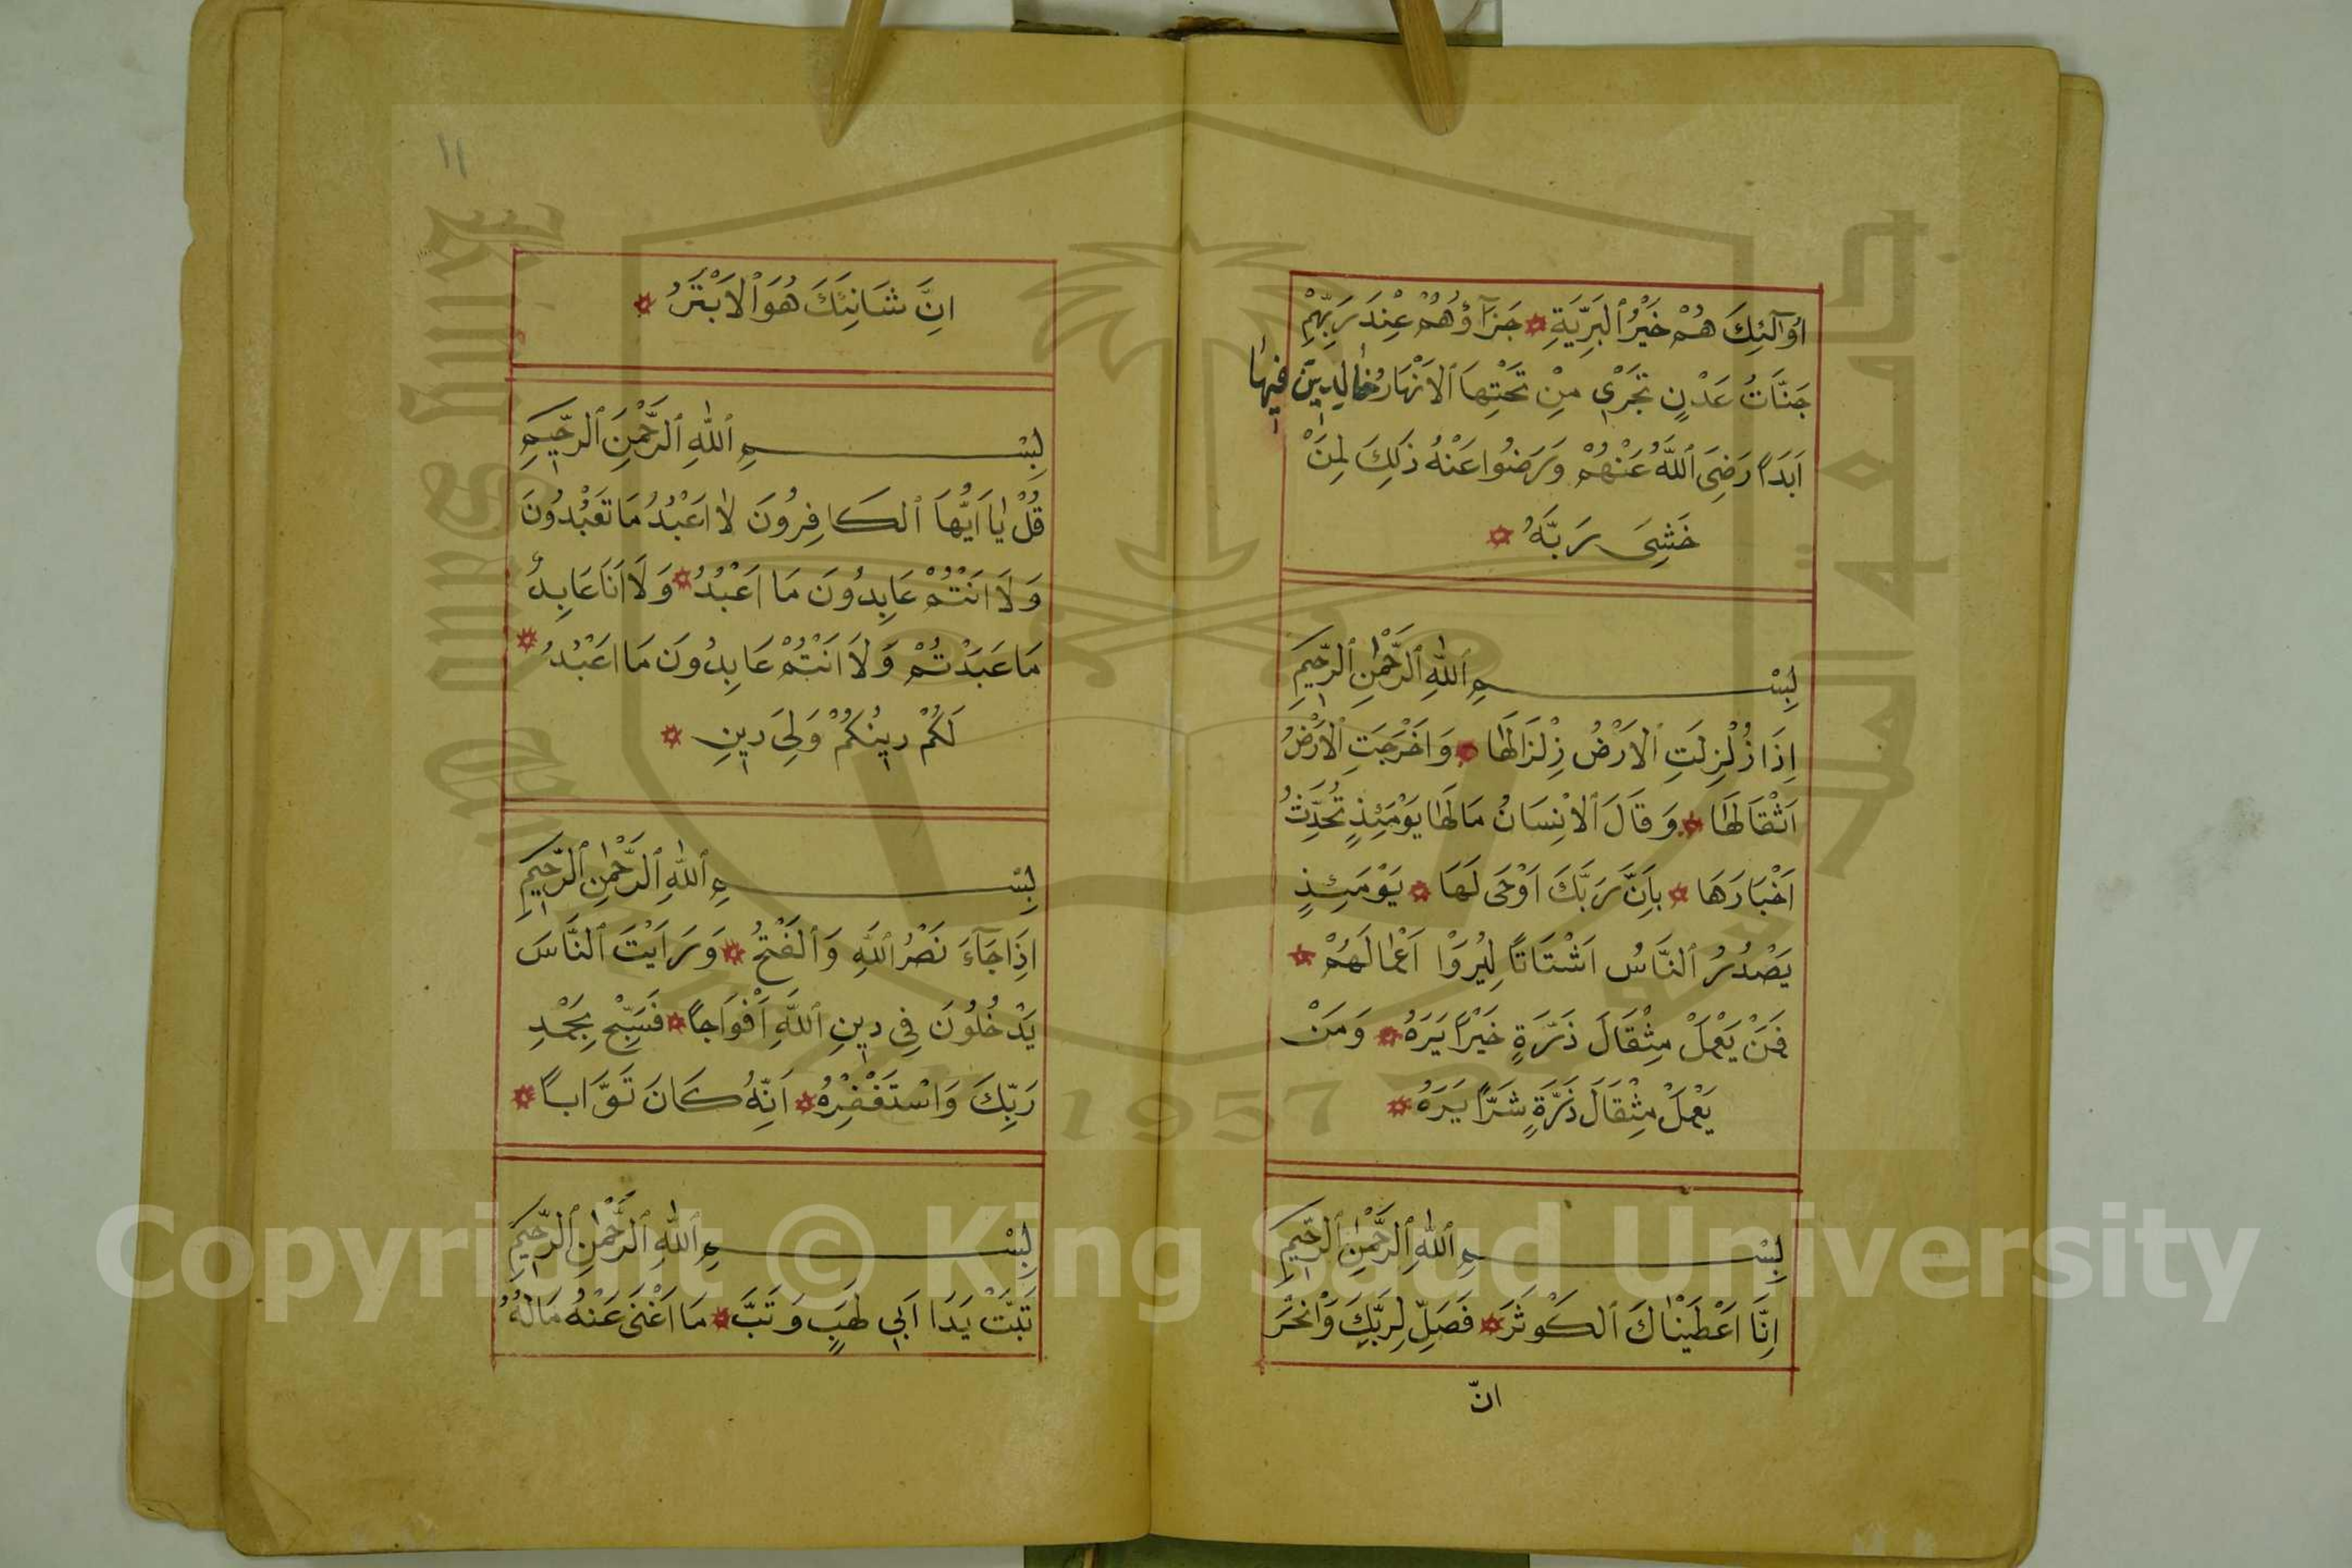 اُولٰٓئِكَ هُمْ خَيْرُ ٱلْبَرِيَّةِ جَزَآؤُهُمْ عِنْدَ رَبِّهِمْ
جَنَّاتُ عَدْنٍ تَجْرِي مِنْ تَحْتِهَا ٱلْاَنْهَارُ خَالِدِينَ فِيهَا
اَبَدًا رَضِيَ ٱللّٰهُ عَنْهُمْ وَرَضُوا عَنْهُ ذَلِكَ لِمَنْ
خَشِيَ رَبَّهُ
بِسْمِ ٱللّٰهِ ٱلرَّحْمٰنِ ٱلرَّحِيمِ
اِذَا زُلْزِلَتِ ٱلْاَرْضُ زِلْزَالَهَا وَاَخْرَجَتِ ٱلْاَرْضُ
اَثْقَالَهَا وَقَالَ ٱلْاِنْسَانُ مَالَهَا يَوْمَئِذٍ تُحَدِّثُ
اَخْبَارَهَا بِاَنَّ رَبَّكَ اَوْحَى لَهَا يَوْمَئِذٍ
يَصْدُرُ ٱلنَّاسُ اَشْتَاتًا لِيُرَوْا اَعْمَالَهُمْ
فَمَنْ يَعْمَلْ مِثْقَالَ ذَرَّةٍ خَيْرًا يَرَهُ وَمَنْ
يَعْمَلْ مِثْقَالَ ذَرَّةٍ شَرًّا يَرَهُ
بِسْمِ ٱللّٰهِ ٱلرَّحْمٰنِ ٱلرَّحِيمِ
اِنَّا اَعْطَيْنَاكَ ٱلْكَوْثَرَ فَصَلِّ لِرَبِّكَ وَٱنْحَرْ
انّ
١١
اِنَّ شَانِئَكَ هُوَ ٱلْاَبْتَرُ
بِسْمِ ٱللّٰهِ ٱلرَّحْمٰنِ ٱلرَّحِيمِ
قُلْ يَا اَيُّهَا ٱلْكَافِرُونَ لَا اَعْبُدُ مَا تَعْبُدُونَ
وَلَا اَنْتُمْ عَابِدُونَ مَا اَعْبُدُ وَلَا اَنَا عَابِدٌ
مَا عَبَدْتُمْ وَلَا اَنْتُمْ عَابِدُونَ مَا اَعْبُدُ
لَكُمْ دِينُكُمْ وَلِيَ دِينِ
بِسْمِ ٱللّٰهِ ٱلرَّحْمٰنِ ٱلرَّحِيمِ
اِذَا جَآءَ نَصْرُ ٱللّٰهِ وَٱلْفَتْحُ وَرَاَيْتَ ٱلنَّاسَ
يَدْخُلُونَ فِي دِينِ ٱللّٰهِ اَفْوَاجًا فَسَبِّحْ بِحَمْدِ
رَبِّكَ وَاسْتَغْفِرْهُ اِنَّهُ كَانَ تَوَّابًا
بِسْمِ ٱللّٰهِ ٱلرَّحْمٰنِ ٱلرَّحِيمِ
تَبَّتْ يَدَا اَبِي لَهَبٍ وَتَبَّ مَا اَغْنَى عَنْهُ مَالُهُ
1957
Copyright © King Saud University